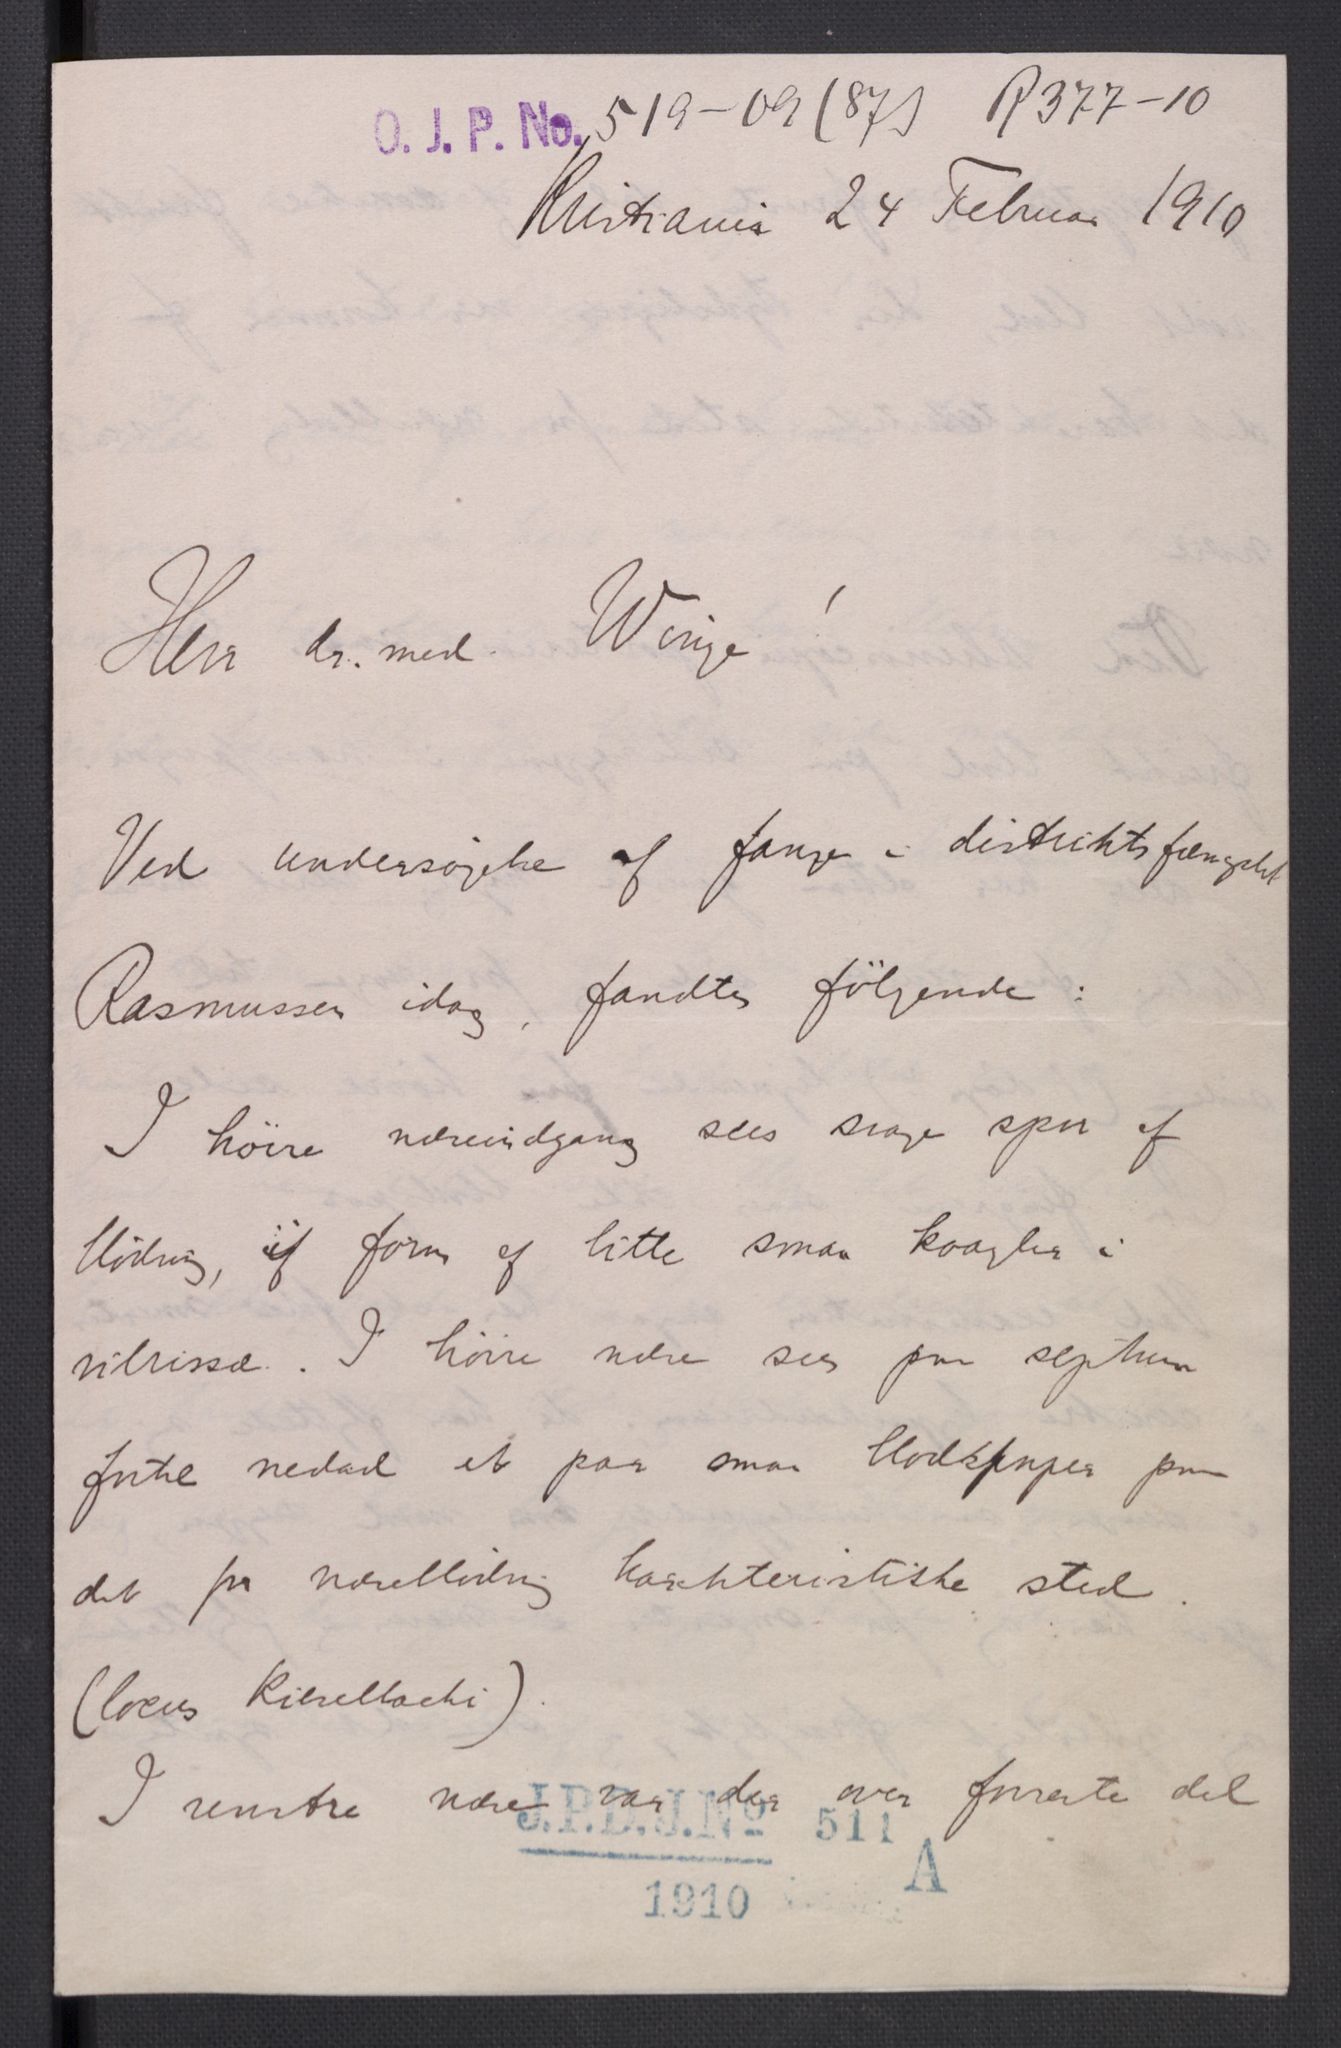 O. J. P. No. 519-09 (87) R 377-10
Kristiania 24 Februar 1910
Herr dr. med. Winge!
Ved undersøgelse af fange i distriktsfængslet
Rasmussen idag, fandtes følgende:
I höire næseindgang sees svage spor af
blödning, i form af litte smaa koagler i
vibrissæ. I höire næse sees paa septum
fortil nedad et par smaa blodpropper paa
det for næseblödning karakteristiske sted.
(locus Kiesselbachi).
I venstre næse var der over forreste del
J.P.D.J.Nº 511
A
1910